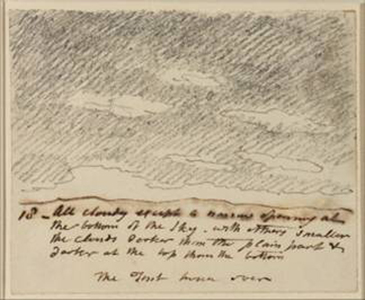 18 - All cloudy except a narrow opening at
the bottom of the Sky. with others smaller
the clouds Darker than the plain part &
Darker at the top than the bottom
The Tint twice over